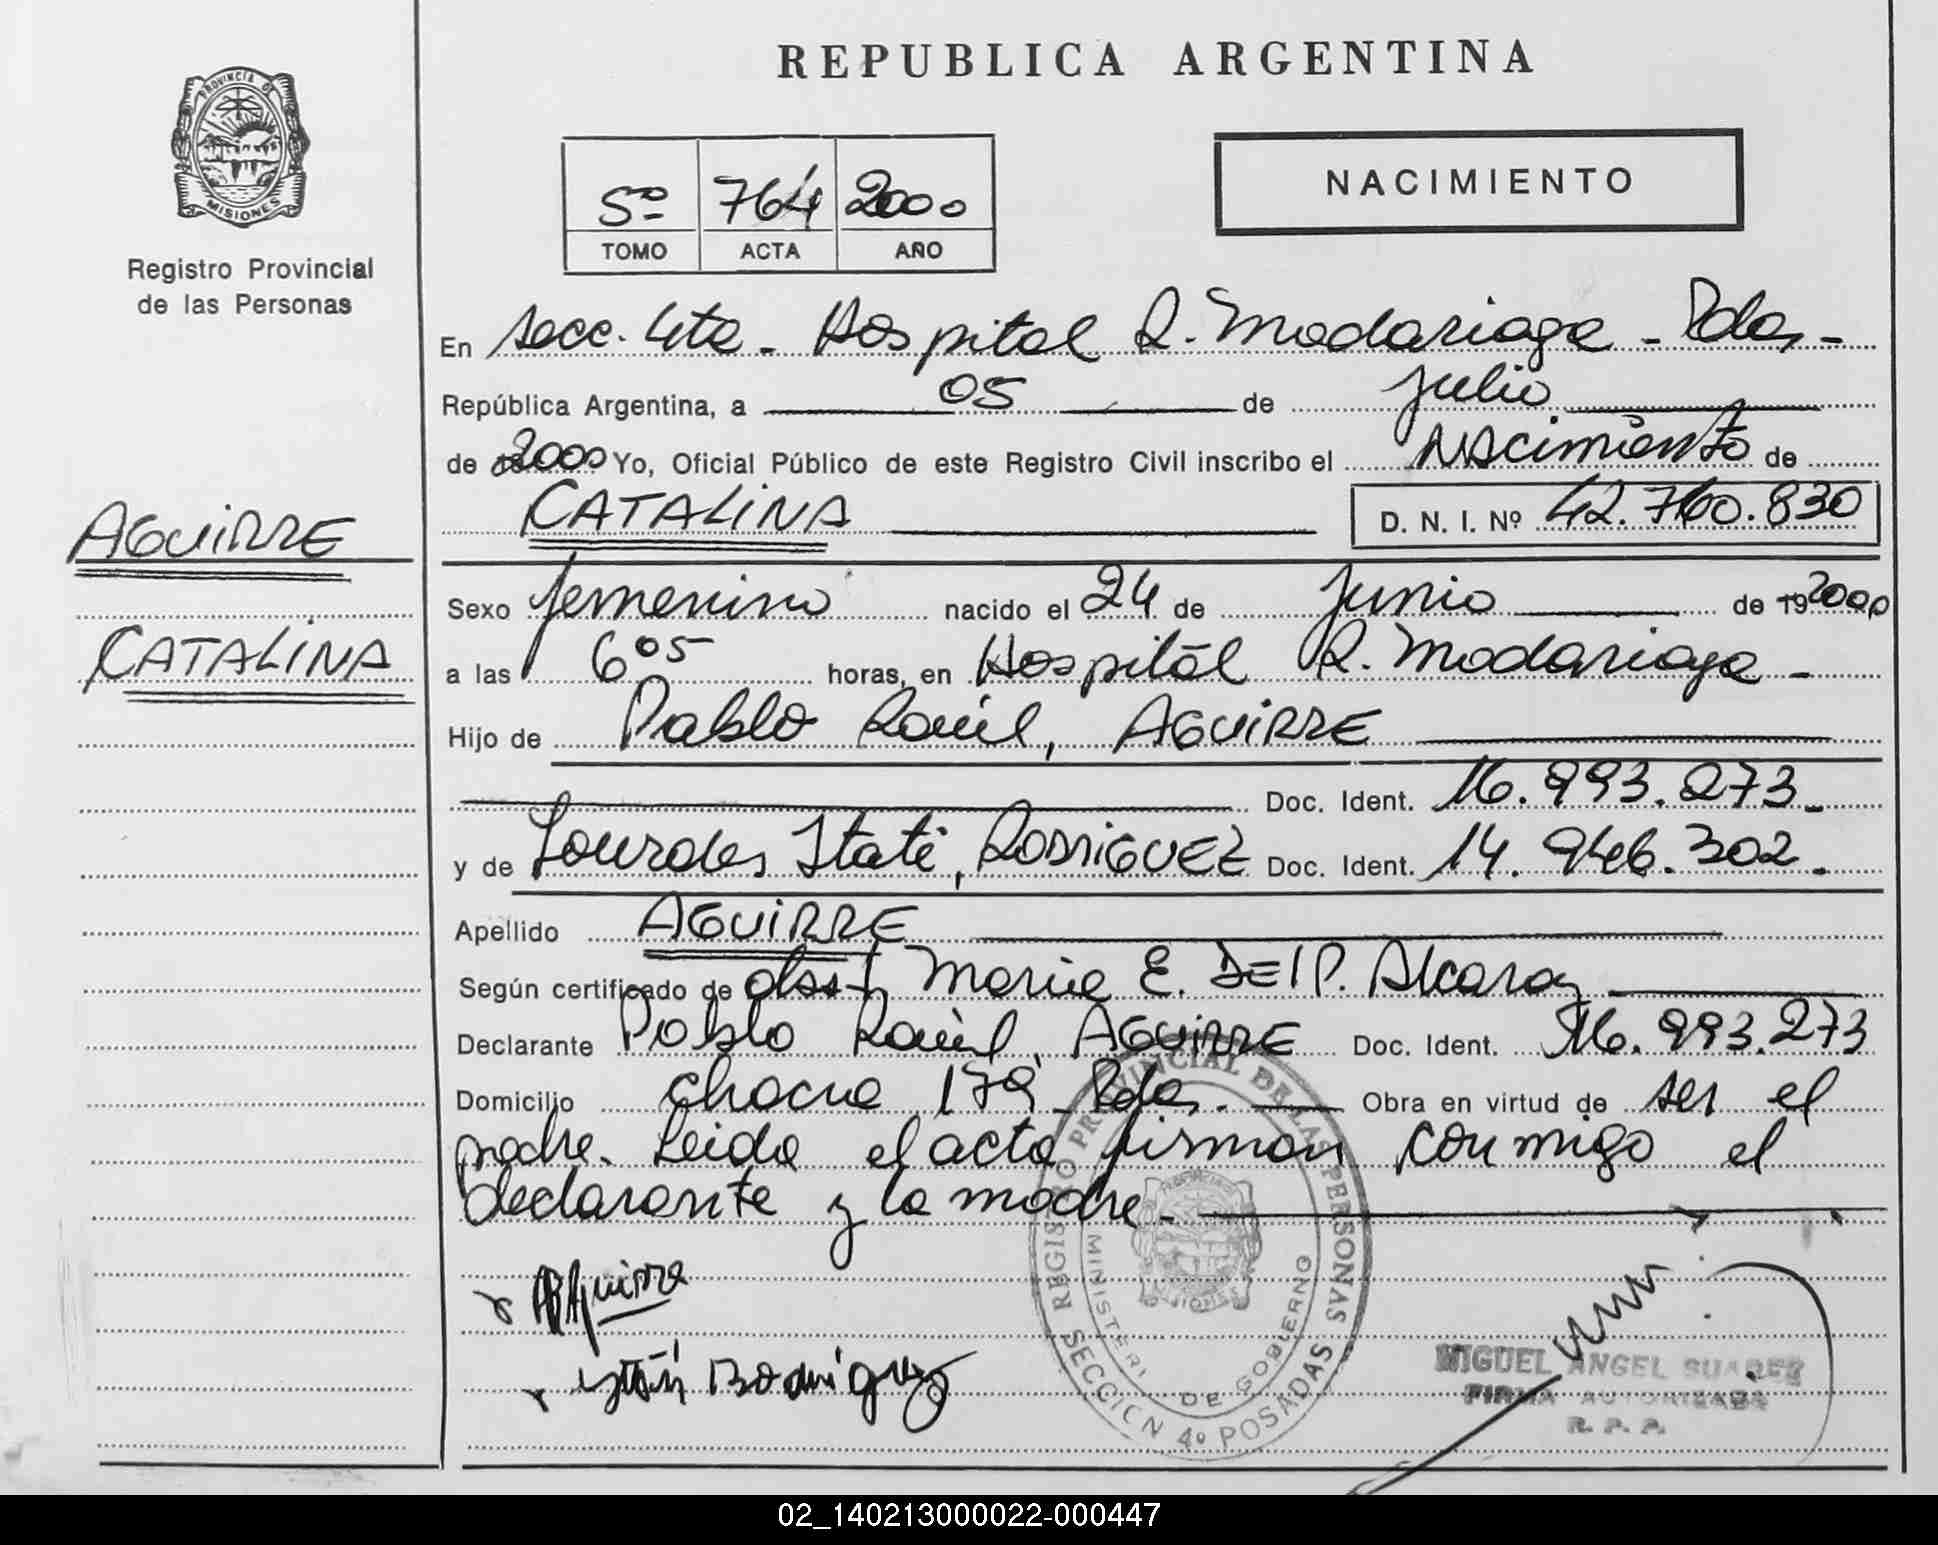 REPUBLICA ARGENTINA
PROVINCIA DE
MISIONES
Registro Provincial
de las Personas
5º 764 2000
TOMO ACTA AÑO
NACIMIENTO
En Secc. 4ta - Hospital R. Madariaga - Pdas -
República Argentina, a 05 de Julio
de 2000 Yo, Oficial Público de este Registro Civil inscribo el Nacimiento de
CATALINA D. N. I. Nº 42.760.830
AGUIRRE
CATALINA
Sexo femenino nacido el 24 de Junio de 19 2000
a las 6 05 horas, en Hospital R. Madariaga -
Hijo de Pablo Raúl, AGUIRRE
Doc. Ident. 16.993.273.-
y de Lourdes Itatí, RODRIGUEZ Doc. Ident. 14.946.302.-
Apellido AGUIRRE
Según certificado de obst. María E. DEIP. Alcaraz
Declarante Pablo Raúl, AGUIRRE Doc. Ident. 16.993.273
Domicilio chacra 179 - Pdas. Obra en virtud de ser el
padre. Leida el acta firman conmigo el
declarante y la madre.-
Aguirre
Itatí Rodriguez
REGISTRO PROVINCIAL DE LAS PERSONAS
MINISTERI DE GOBIERNO
MISIONES
SECCION 4º POSADAS
MIGUEL ANGEL SUAREZ
FIRMA AUTORIZADA
R. P. P.
02_140213000022-000447